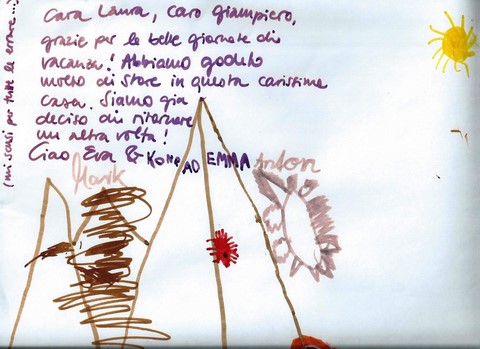 Cara Laura, Caro Giampiero,
grazie per le belle giornate di
vacanza! Abbiamo goduto
molto di stare in questa carissima
casa. Siamo gia
deciso di ritornare
un altra volta!
Ciao Eva & KONRAD EMMA Anton
Marik
(mi scusi per tutte le errore...)